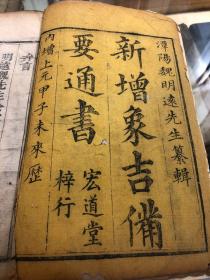 潭陽魏明遠先生纂輯
新增象吉備
要通書
宏道堂
梓行
內增上元甲子未來歴